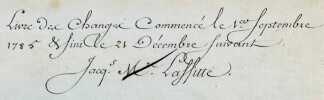 Livre des Changes Commencé le 1er Septembre
1785 & fini le 21 Décembre suivant
Jacqs. Mn. Laffitte.